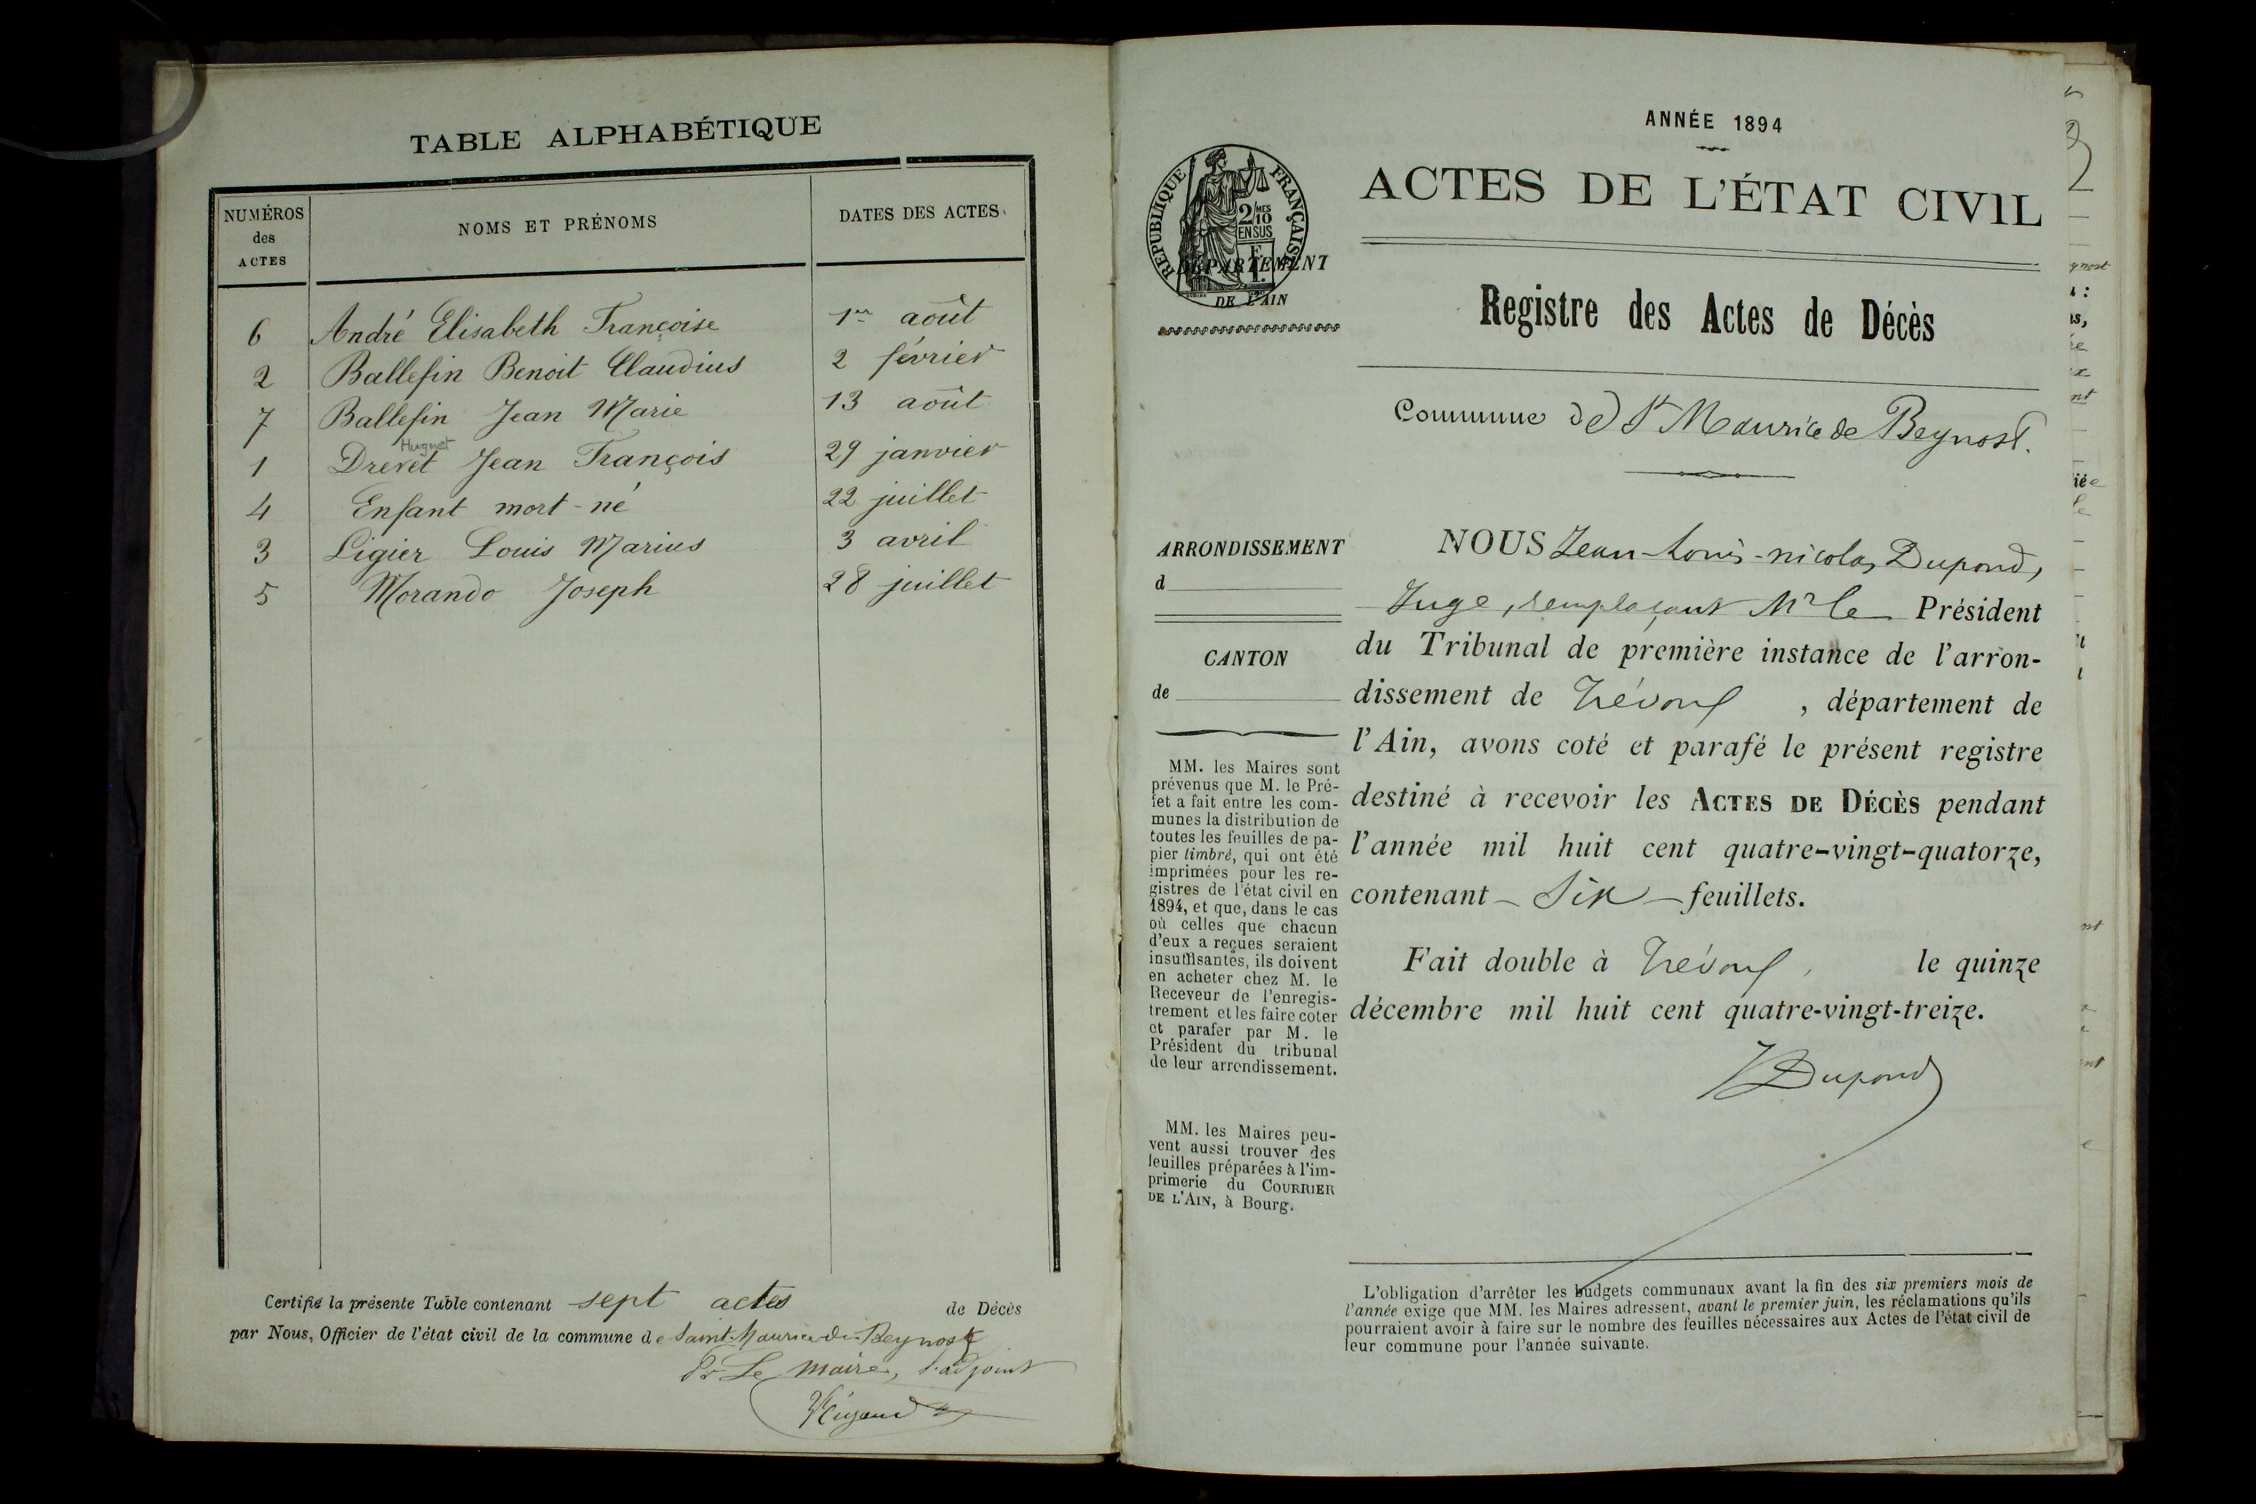 TABLE ALPHABÉTIQUE
NUMÉROS
des
ACTES
NOMS ET PRÉNOMS
DATES DES ACTES
6 André Elisabeth Françoise 1er août
2 Ballefin Benoit Claudius 2 février
7 Ballefin Jean Marie 13 août
Huguet
1 Drevet Jean François 29 janvier
4 Enfant mort-né 22 juillet
3 Ligier Louis Marius 3 avril
5 Morando Joseph 28 juillet
Certifié la présente Table contenant sept actes de Décès
par Nous, Officier de l'état civil de la commune de Saint-Maurice-de-Beynost
Pr Le Maire, l'adjoint
ANNÉE 1894
ACTES DE L'ÉTAT CIVIL
RÉPUBLIQUE FRANÇAISE
2/MES
10
EN SUS
DÉPARTEMENT
DE L'AIN
Registre des Actes de Décès
Commune de St Maurice de Beynost.
ARRONDISSEMENT
d
CANTON
de
MM. les Maires sont
prévenus que M. le Pré-
fet a fait entre les com-
munes la distribution de
toutes les feuilles de pa-
pier timbré, qui ont été
imprimées pour les re-
gistres de l'état civil en
1894, et que, dans le cas
où celles que chacun
d'eux a reçues seraient
insuffisantes, ils doivent
en acheter chez M. le
Receveur de l'enregis-
trement et les faire coter
et parafer par M. le
Président du tribunal
de leur arrondissement.
MM. les Maires peu-
vent aussi trouver des
feuilles préparées à l'im-
primerie du COURRIER
DE L'AIN, à Bourg.
NOUS Jean-Louis-nicolas Dupond,
Juge, remplaçant Mr le Président
du Tribunal de première instance de l'arron-
dissement de Trévoux, département de
l'Ain, avons coté et parafé le présent registre
destiné à recevoir les ACTES DE DÉCÈS pendant
l'année mil huit cent quatre-vingt-quatorze,
contenant - Six - feuillets.
Fait double à Trévoux, le quinze
décembre mil huit cent quatre-vingt-treize.
Dupond
L'obligation d'arrêter les budgets communaux avant la fin des six premiers mois de
l'année exige que MM. les Maires adressent, avant le premier juin, les réclamations qu'ils
pourraient avoir à faire sur le nombre des feuilles nécessaires aux Actes de l'état civil de
leur commune pour l'année suivante.